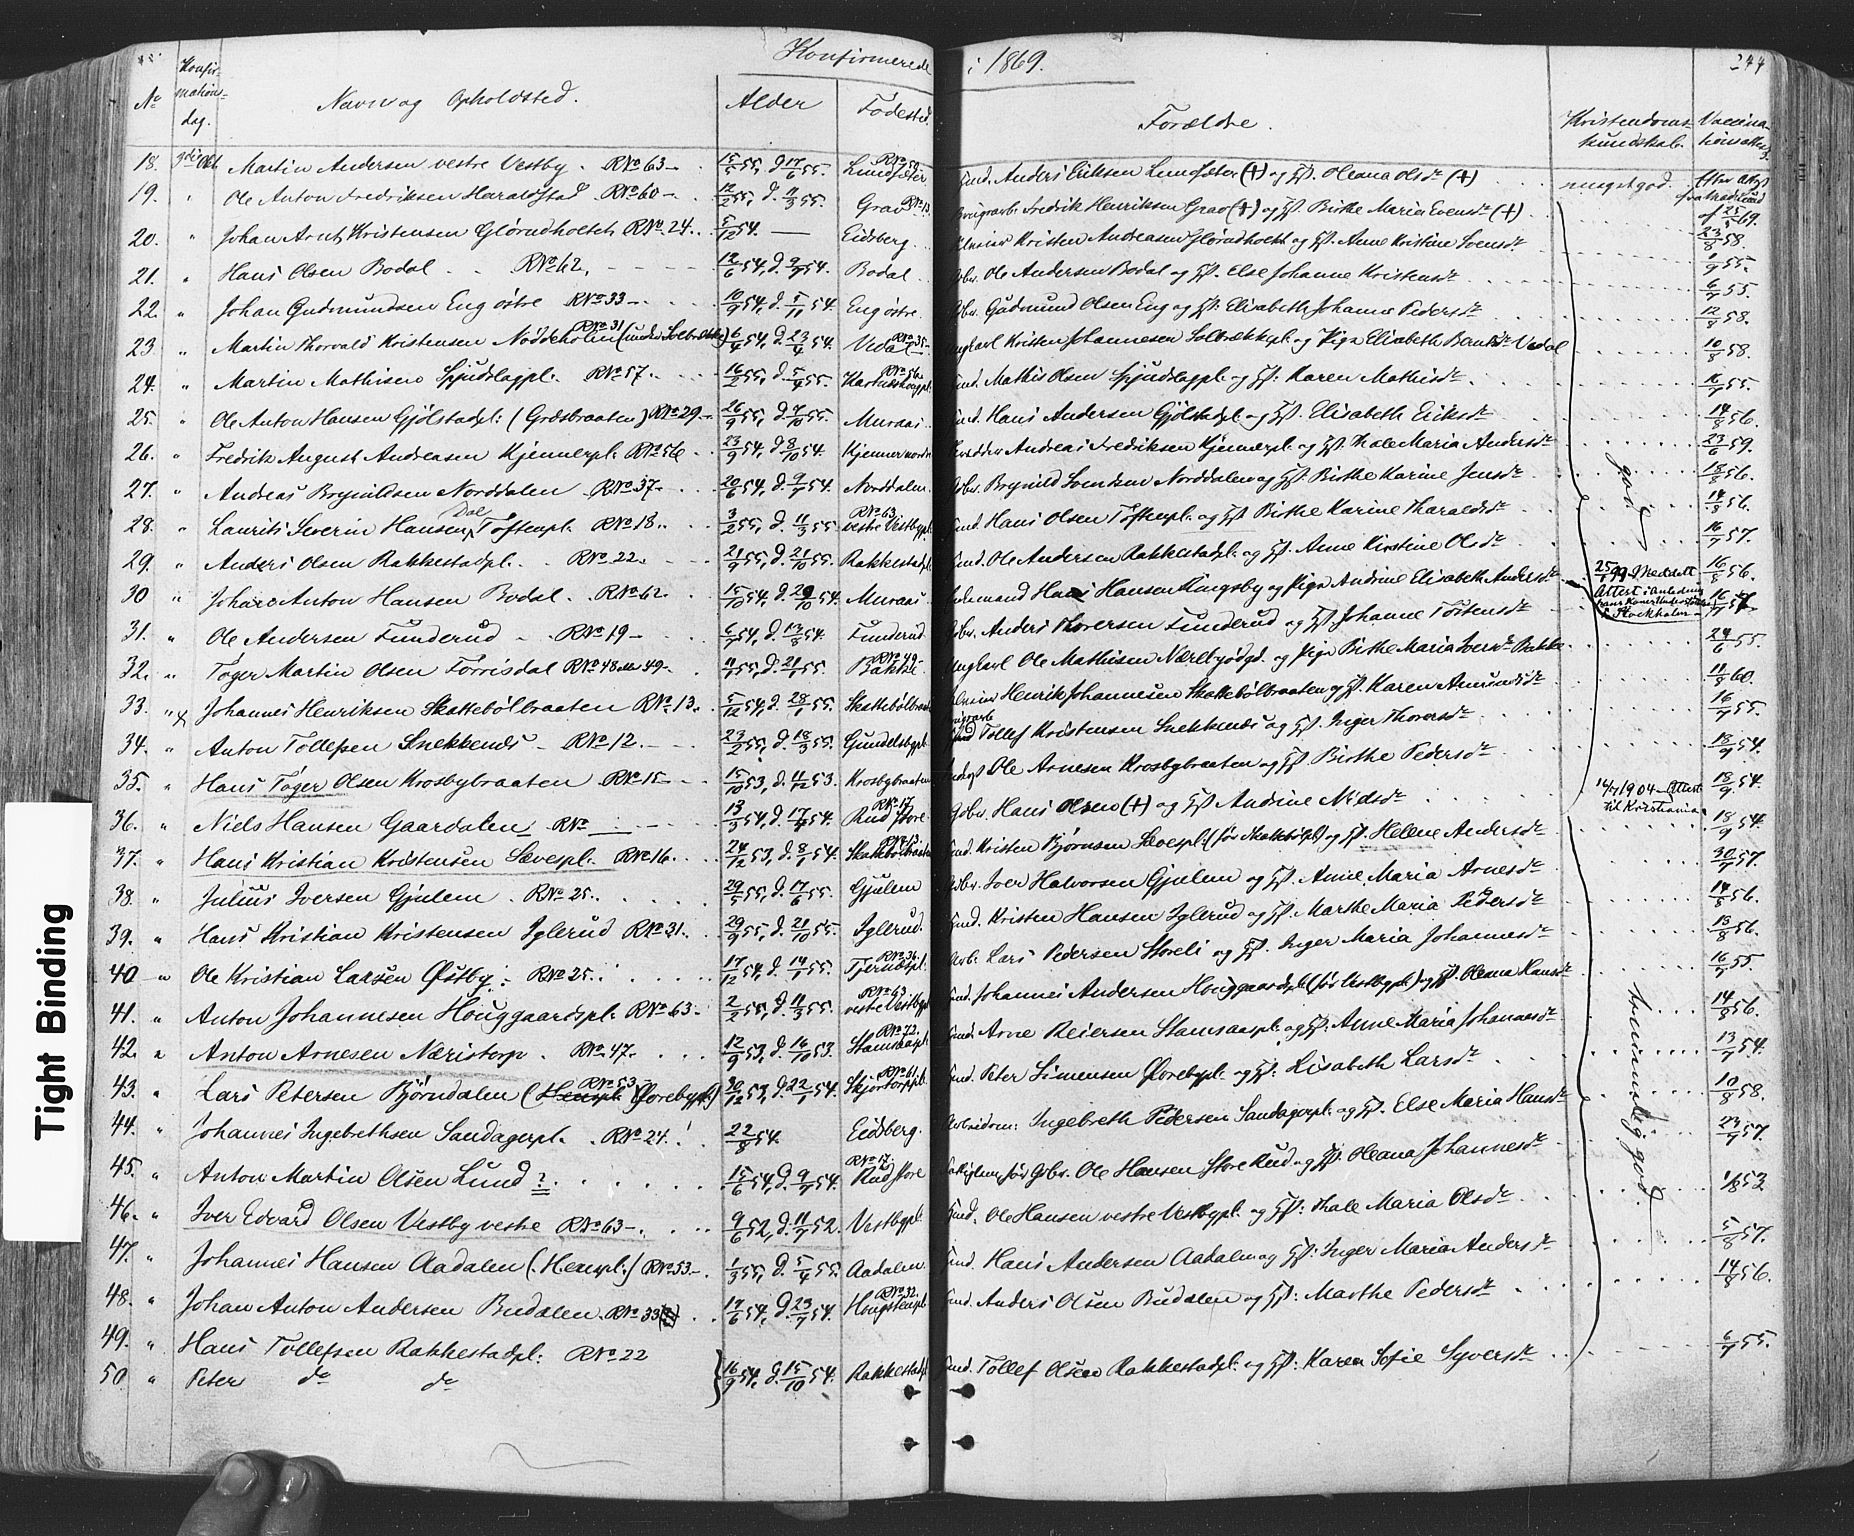 Konfirmerede i 1869. 244
No Konfirmationsdag. Navn og Opholdsted. Alder Fødested. Forældre. Kristendomskundskab. Vaccinationsattest
18. Martin Andersen vestre Vestby. RNo 63 15/5 55, d. 17/6 55. RNo 50 Lundsæter. Anders Eriksen Lundsæter (+) og Oleana Olsdr (+) meget god.
19. " Ole Anton Fredriksen Haraldstad RNo 60 12/2 55, d. 11/3 55. Grav RNo 13 Fredrik Henriksen Grav (+) og Birthe Maria Evensdr (+)
20. " Johan Arnt Kristensen Glørudholtet RNo 24. 5/12 54. Eidsberg. Kristen Andreasen Glørudholtet og Anne Kristine Svensdr 23/8 58.
21. " Hans Olsen Bodal RNo 62. 12/6 54, d. 9/7 54. Bodal Ole Andersen Bodal og Else Johanne Kristensdr 1/9 55.
22. " Johan Gudmundsen Eng østre RNo 33 10/9 54, d. 5/11 54. Eng østre. Gudmund Olsen Eng og Elisabeth Johanne Pedersdr 6/7 55.
23. " Martin Thorvald Kristensen Nøddeholm RNo 31 6/4 54, d. 23/4 54. Vedal RNo 35 Ungkarl Kristen Johannesen og Pige Elisabeth Vedal 12/8 58.
24. " Martin Mathisen Spjudslagpl. RNo 57. 16/2 55, d. 5/4 55. RNo 56 Mathis Olsen Spjudslagpl. og Karen Mathisdr. 10/8 58.
25. " Ole Anton Hansen Gjølstadpl. (Græsbraaten) RNo 29 26/9 55, d. 7/10 55. Muraas Hans Andersen Gjølstadpl. og Elisabeth Eriksdr 16/7 55.
26. " Fredrik August Andreasen Kjennerpl. RNo 56 23/9 54, d. 8/10 54. Kjenner nordre Andreas Fredriksen Kjennerpl. og Thale Maria Andersdr 14/8 56.
27. " Andreas Brynildsen Norddalen RNo 37. 20/6 54, d. 9/7 54. Norddalen Brynild Svendsen Norddalen og Birthe Karine Jensdr 23/6 59.
28. " Laurits Severin Hansen Dal Tøftenpl. RNo 18. 3/2 55, d. 11/3 55. RNo 63 vestre Vestbypl. Hans Olsen Tøftenpl. og Birthe Karine Tharaldsdr god 18/8 56.
29. " Anders Olsen Rakkestadpl. RNo 22. 21/9 55, d. 21/10 55. Rakkestadpl. Ole Andersen Rakkestadpl. og Anne Kirstine Olsdr 14/8 56.
30 " Johan Anton Hansen Bodal. RNo 62. 15/10 54, d. 29/10 54. Muraas Hans Hansen Kingsby og Pige Andrine Elisabeth Andersdr Meddelt Attest i Anledning Stockholm
31. " Ole Andersen Funderud RNo 19 6/7 54, d. 13/8 54. Funderud Anders Thoresen Funderud og Johanne Tostensdr
32. " Toger Martin Olsen Førrisdal RNo 48 49 11/1 55, d. 21/1 55. RNo 49 Bakke Ungkarl Ole Mathisen og Pige Birthe Maria Iversdr Bakke 24/6 55.
33. " x Johannes Henriksen Skattebølbraaten RNo 13. 5/12 54, d. 28/1 55. Skattebølbraaten Henrik Johannesen Skattebølbraaten og Karen Amundsdr 11/8 60.
34. " Anton Tollefsen Snekkenes RNo 12. 23/2 55, d. 18/3 55. Gundelsbypl. Tollef Kristensen Snekkenæs og Inger Thoresdr 16/7 55.
35. " Hans Tøger Olsen Krosbybraaten RNo 15 15/10 53, d. 11/12 53. Krosbybraaten Ole Arnesen Krosbybraaten og Birthe Pedersdr 18/9 54.
36. " Niels Hansen Gaardalen RNo 13/3 54, d. 17/4 54. RNo 17 Rud store Hans Olsen (+) og Andrine Nielsdr 14/7 1904 Attest til Kristiania 18/9 54.
37. " Hans Kristian Kristensen Sævespl. RNo 16. 24/12 53, d. 8/1 54. RNo 13 Skattebølbraaten Kristen Bjørnsen Sævespl. (før Skattebølpl.) og Helene Andersdr 18/9 54.
38. " Julius Iversen Gjulem. RNo 25. 29/5 55, d. 17/6 55. Gjulem Iver Halvorsen Gjulem og Anne Maria Arnesdr 30/7 57.
39. " Hans Kristian Kristensen Iglerud RNo 31. 29/9 55, d. 21/10 55. Iglerud. Kristen Hansen Iglerud og Marthe Maria Pedersdr 14/8 56.
40 " Ole Kristian Larsen Østby. RNo 25. 17/12 54, d. 14/1 55. RNo 36 Tjernæspl. Lars Pedersen Storeli og Inger Maria Johannesdr 13/8 56.
41. " Anton Johannesen Houggaardspl. RNo 63 2/2 55, d. 11/3 55. RNo 63 vestre Vestbypl. Johannes Andersen Houggaardspl. (før Vestbypl.) og Oleana Hansdr 16/7 55.
42. " Anton Arnesen Næristorp. RNo 47. 12/9 53, d. 16/10 53. RNo 72. Arne Reiersen og Anne Maria Johannesdr 14/8 56.
43. " Lars Petersen Bjørndalen RNo 53 30/12 53, d. 22/1 54. RNo 61. Skjørtorppl. Peter Simensen og Lisabeth Larsdr temmelig god. 13/7 54.
44. " Johannes Ingebrethsen Sandagerpl. RNo 24. 22/8 54. Eidsberg. Ingebreth Pedersen Sandagerpl. og Else Maria Hansdr 10/8 58.
45. " Anton Martin Olsen Lund ? 15/6 54, d. 9/7 54. RNo 17. Rud store før Gbr. Ole Hansen Store Rud og Oleana Johannesdr
46. " Iver Edvard Olsen Vestby vestre RNo 63 9/6 52, d. 11/7 52. Vestbypl. Ole Hansen vestre Vestbypl. og Thale Maria Olsdr 1/8 53
47. " Johannes Hansen Aadalen (Henspl.) RNo 53 1/3 55, d. 5/4 55. Aadalen. Hans Andersen Aadalen og Inger Maria Andersdr 5/8 57.
48. " Johan Anton Andersen Budalen. RNo 33 17/6 54, d. 23/7 54. RNo 32. Anders Olsen Budalen og Marthe Pedersdr 14/8 56.
49. " Hans Tollefsen Rakkestadpl. RNo 22
50 " Peter do do 16/9 54, d. 15/10 54. Rakkestadpl. Tollef Olsen Rakkestadpl. og Karen Sofie Syversdr 6/7 55.
Tight Binding